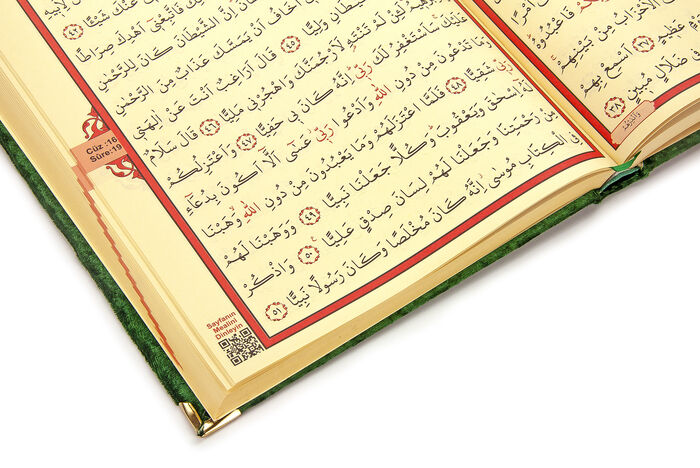 اَمْرًا
فَاعْبُدُوهُ
الْاَحْزَابُ مِنْ بَيْنِهِمْ
عَظِيمٍ ﴿٣٧﴾ اَسْمِعْ بِهِمْ
ضَلَالٍ مُبِينٍ ﴿٣٨﴾
وَاَنْذِرْهُمْ
عَنْكَ شَيْئًا ﴿٤٢﴾
فَاتَّبِعْنِي اَهْدِكَ صِرَاطًا
اِنَّ الشَّيْطَانَ كَانَ لِلرَّحْمٰنِ
اَخَافُ اَنْ يَمَسَّكَ عَذَابٌ مِنَ الرَّحْمٰنِ
لِلشَّيْطَانِ وَلِيًّا ﴿٤٥﴾ قَالَ اَرَاغِبٌ اَنْتَ عَنْ اٰلِهَتِي
يَا اِبْرٰهِيمُ لَئِنْ لَمْ تَنْتَهِ لَاَرْجُمَنَّكَ وَاهْجُرْنِي مَلِيًّا ﴿٤٦﴾ قَالَ سَلَامٌ
عَلَيْكَ سَاَسْتَغْفِرُ لَكَ رَبِّي اِنَّهُ كَانَ بِي حَفِيًّا ﴿٤٧﴾ وَاَعْتَزِلُكُمْ
وَمَا تَدْعُونَ مِنْ دُونِ اللّٰهِ وَاَدْعُوا رَبِّي عَسٰى اَلَّا اَكُونَ بِدُعَاءِ
رَبِّي شَقِيًّا ﴿٤٨﴾ فَلَمَّا اعْتَزَلَهُمْ وَمَا يَعْبُدُونَ مِنْ دُونِ اللّٰهِ وَهَبْنَا
لَهُ اِسْحٰقَ وَيَعْقُوبَ وَكُلًّا جَعَلْنَا نَبِيًّا ﴿٤٩﴾ وَوَهَبْنَا لَهُمْ
مِنْ رَحْمَتِنَا وَجَعَلْنَا لَهُمْ لِسَانَ صِدْقٍ عَلِيًّا ﴿٥٠﴾ وَاذْكُرْ
فِي الْكِتَابِ مُوسٰى اِنَّهُ كَانَ مُخْلَصًا وَكَانَ رَسُولًا نَبِيًّا ﴿٥١﴾
Cüz :16
Sûre:19
Sayfanın
Mealini
Dinleyin